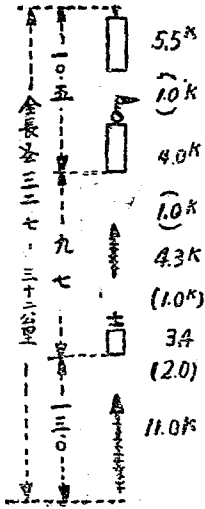 全長
公里
一〇・五
九七
一三.〇
5.5K
(1.0K)
4.0K
(1.0K)
4.3K
(1.0K)
34
(2.0)
11.0K